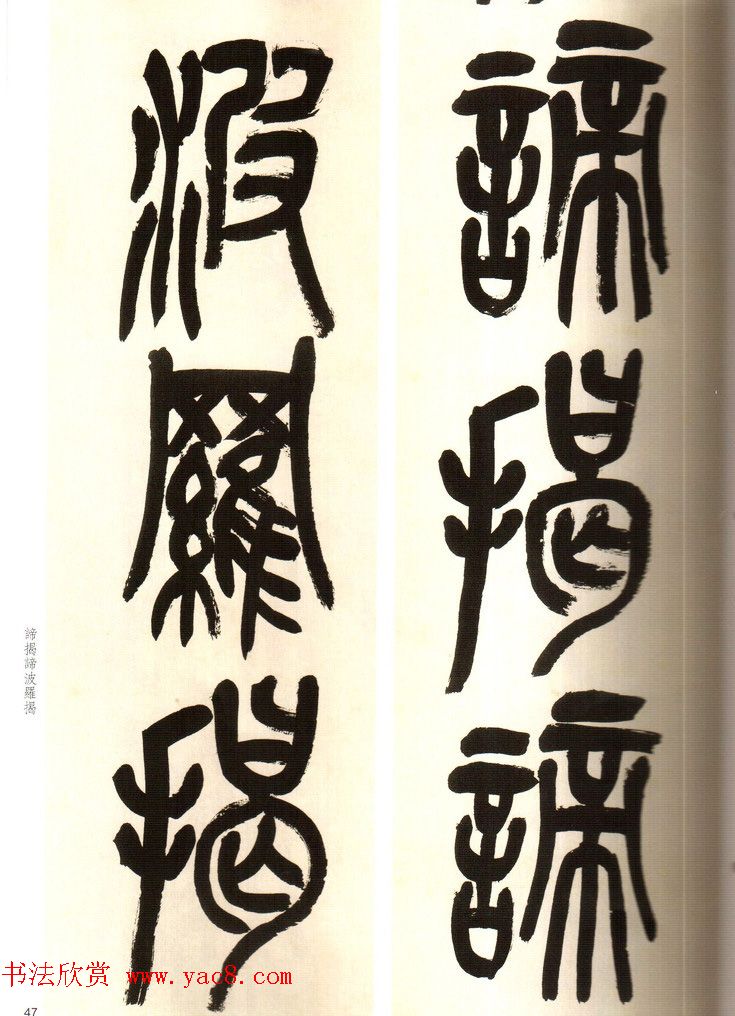 諦揭諦
波羅揭
諦揭諦波羅揭
书法欣赏 www.yac8.com
47